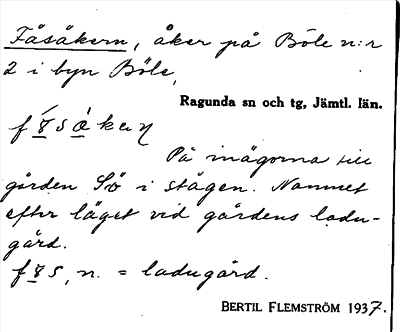 Fäsåkern, åker på Böle n:r
2 i byn Böle,
Ragunda sn och tg, Jämtl. län.
På inägorna till
gården Sö i stägen. Namnet
efter läget vid gårdens ladu-
gård.
n. = ladugård.
BERTIL FLEMSTRÖM 1937.